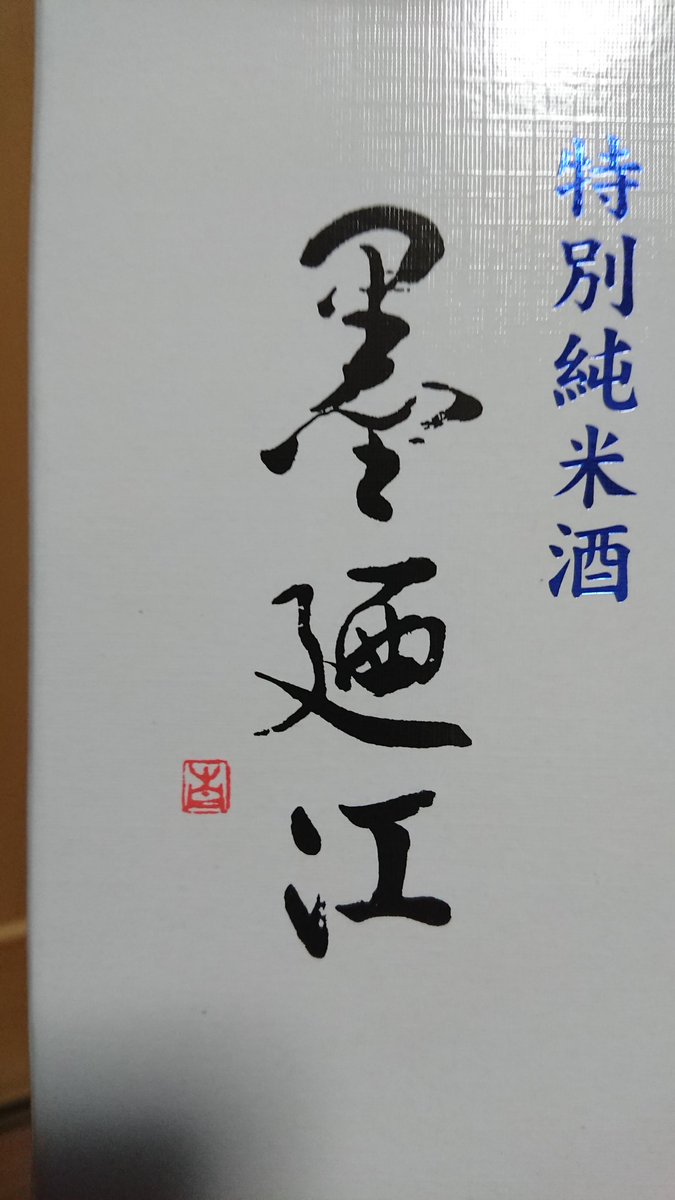 特別純米酒
墨廼江